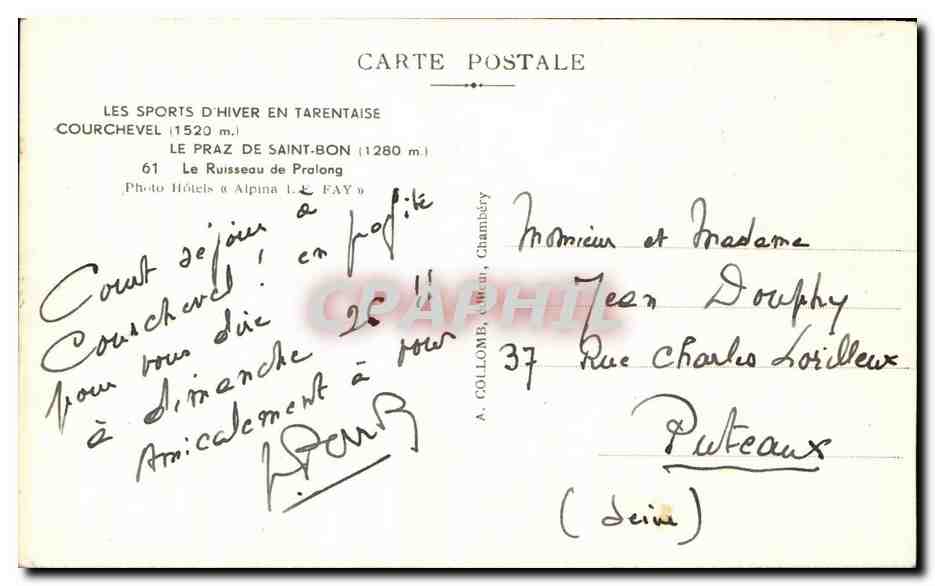 CARTE POSTALE
LES SPORTS D'HIVER EN TARENTAISE
COURCHEVEL (1520 m.)
LE PRAZ DE SAINT-BON (1280 m.)
61 Le Ruisseau de Pralong
Photo Hôtels « Alpina L. E. FAY »
Court séjour à
Courchevel ! en profite
pour vous dire
à dimanche 26 !!
Amicalement à vous
A. COLLOMB, éditeur, Chambéry
Monsieur et Madame
Jean Douphy
37 Rue Charles Lorilleux
Puteaux
(Seine)
CPAPHIL